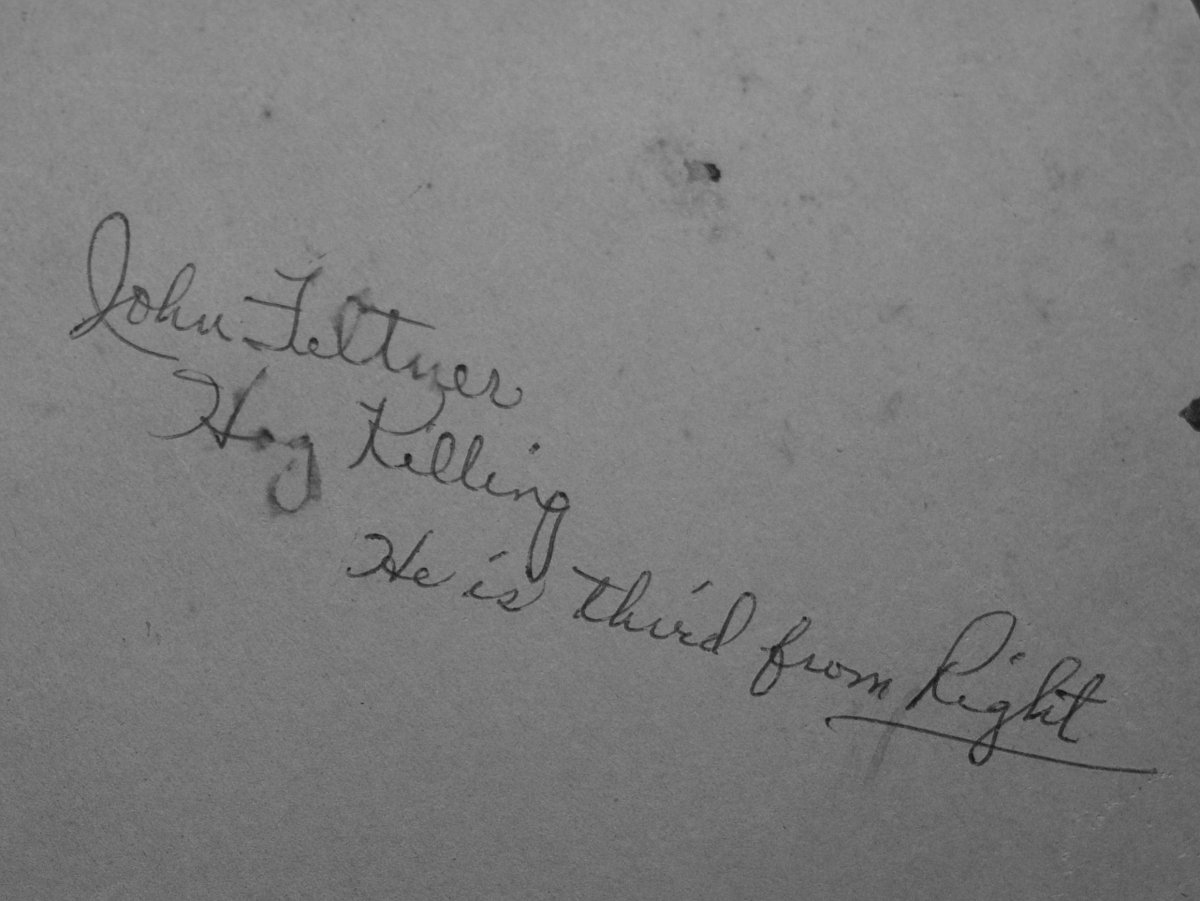 John Feltner
Hog Killing
He is third from Right